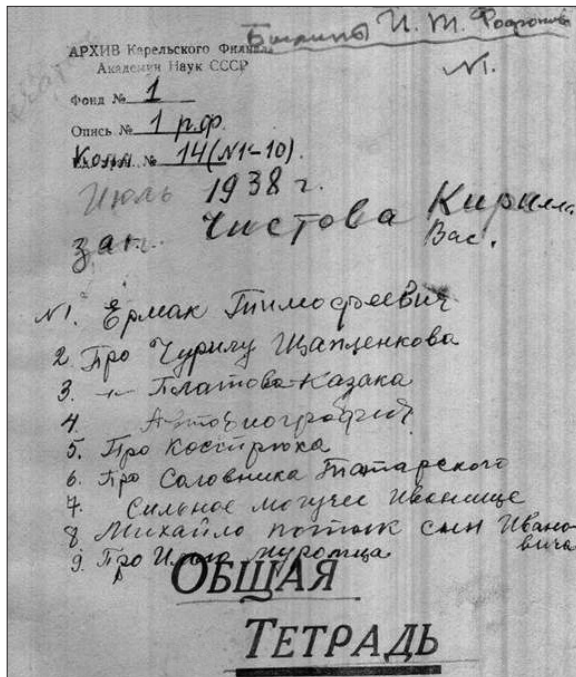 Былины И. Т. Фофанова
АРХИВ Карельского Филиала
Академии Наук СССР
№1.
Фонд № 1
Опись № 1 р.ф.
Колл. № 14 (№1-10).
Июль 1938 г.
зап. Чистова Кирилла
Вас.
№1. Ермак Тимофеевич
2. Про Чурилу Щапленкова
3. -"- Платова-Казака
4. Автобиография
5. Про Кострюка
6. Про Соловника Татарского
7. Сильное могучее Иванище
8. Михайло поток сын Ивано-
вича
9. Про Илью муромца
ОБЩАЯ
ТЕТРАДЬ